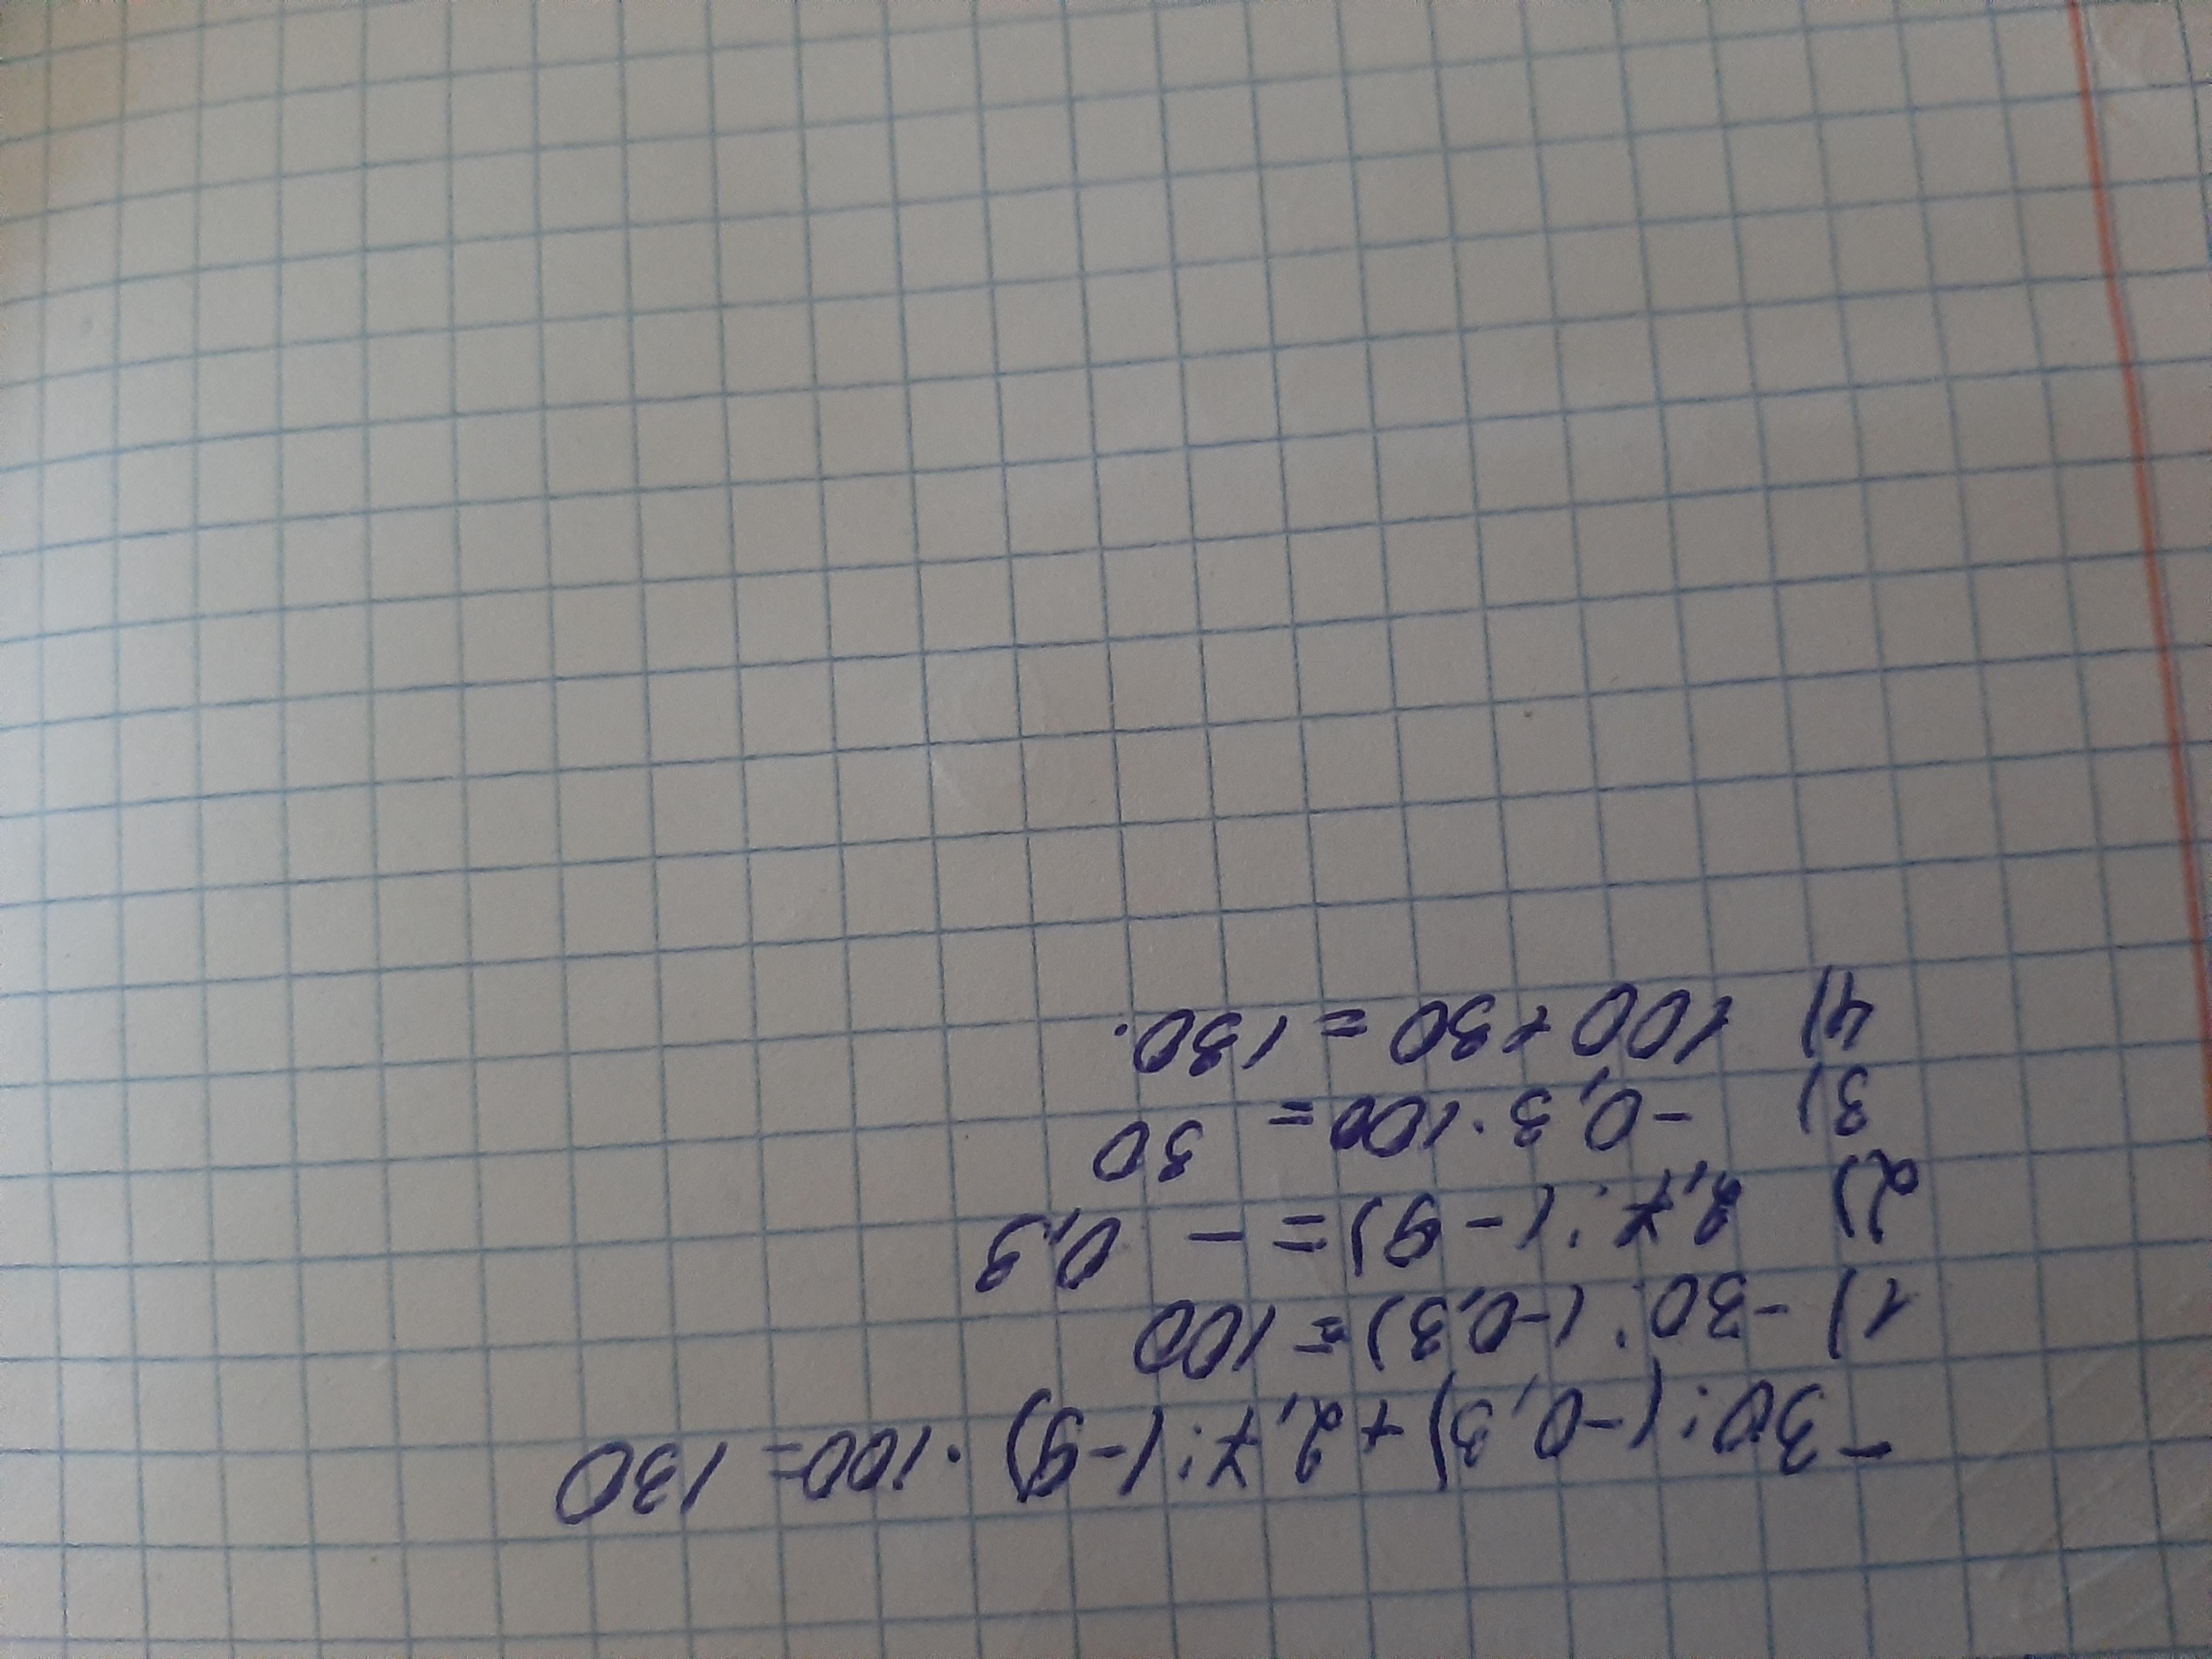 -30:(-0,3)+2,7:(-9)·100=130
1) -30:(-0,3)=100
2) 2,7:(-9)=-0,3
3) -0,3·100= 30
4) 100+30=130.